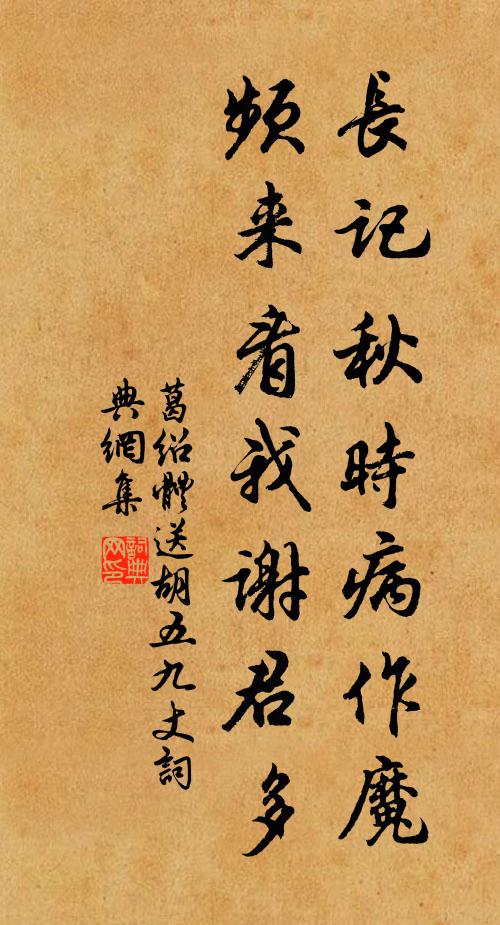 長记秋時病作魔
频来看我谢君多
葛绍體送胡五九丈詞
典網集
詞典
网印